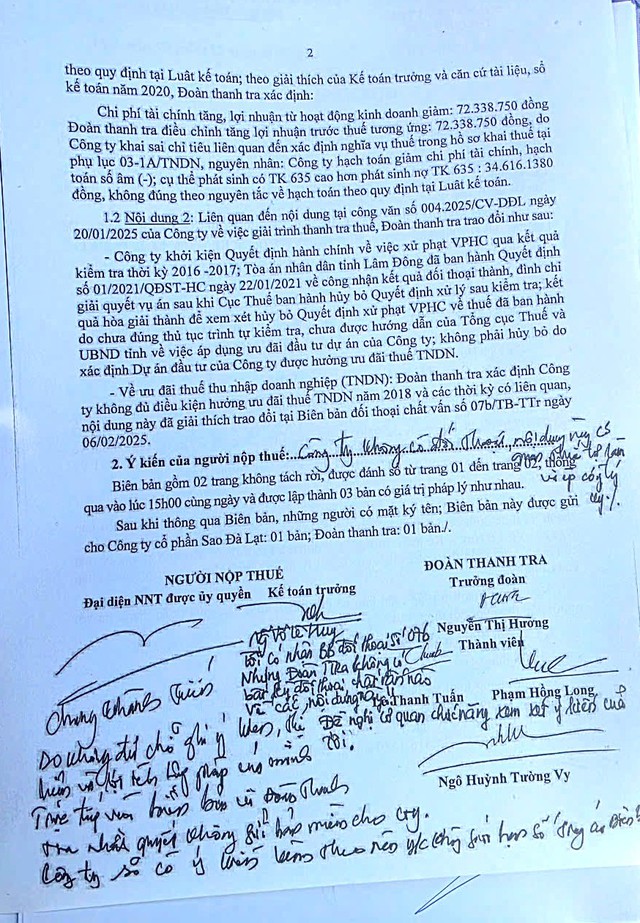 2
theo quy định tại Luật kế toán; theo giải thích của Kế toán trưởng và căn cứ tài liệu, sổ
kế toán năm 2020, Đoàn thanh tra xác định:
Chi phí tài chính tăng, lợi nhuận từ hoạt động kinh doanh giảm: 72.338.750 đồng
Đoàn thanh tra điều chỉnh tăng lợi nhuận trước thuế tương ứng: 72.338.750 đồng, do
Công ty khai sai chỉ tiêu liên quan đến xác định nghĩa vụ thuế trong hồ sơ khai thuế tại
phụ lục 03-1A/TNDN, nguyên nhân: Công ty hạch toán giảm chi phí tài chính, hạch
toán số âm (-); cụ thể phát sinh có TK 635 cao hơn phát sinh nợ TK 635 : 34.616.1380
đồng, không đúng theo nguyên tắc về hạch toán theo quy định tại Luật kế toán.
1.2 Nội dung 2: Liên quan đến nội dung tại công văn số 004.2025/CV-DĐL ngày
20/01/2025 của Công ty về việc giải trình thanh tra thuế, Đoàn thanh tra trao đổi như sau:
- Công ty khởi kiện Quyết định hành chính về việc xử phạt VPHC qua kết quả
kiểm tra thời kỳ 2016 -2017; Tòa án nhân dân tỉnh Lâm Đồng đã ban hành Quyết định
số 01/2021/QĐST-HC ngày 22/01/2021 về công nhận kết quả đối thoại thành, đình chỉ
giải quyết vụ án sau khi Cục Thuế ban hành hủy bỏ Quyết định xử lý sau kiểm tra; kết
quả hòa giải thành để xem xét hủy bỏ Quyết định xử phạt VPHC về thuế đã ban hành
do chưa đúng thủ tục trình tự kiểm tra, chưa được hướng dẫn của Tổng cục Thuế và
UBND tỉnh về việc áp dụng ưu đãi đầu tư dự án của Công ty; không phải hủy bỏ do
xác định Dự án đầu tư của Công ty được hưởng ưu đãi thuế TNDN.
- Về ưu đãi thuế thu nhập doanh nghiệp (TNDN): Đoàn thanh tra xác định Công
ty không đủ điều kiện hưởng ưu đãi thuế TNDN năm 2018 và các thời kỳ có liên quan,
nội dung này đã giải thích trao đổi tại Biên bản đối thoại chất vấn số 07b/TB-TTr ngày
06/02/2025.
2. Ý kiến của người nộp thuế: Công ty không có đối thoại nội dung này
Biên bản gồm 02 trang không tách rời, được đánh số từ trang 01 đến trang 02, thông
qua vào lúc 15h00 cùng ngày và được lập thành 03 bản có giá trị pháp lý như nhau.
Sau khi thông qua Biên bản, những người có mặt ký tên; Biên bản này được gửi
cho Công ty cổ phần Sao Đà Lạt: 01 bản; Đoàn thanh tra: 01 bản./.
NGƯỜI NỘP THUẾ
Đại diện NNT được ủy quyền Kế toán trưởng
ĐOÀN THANH TRA
Trưởng đoàn
Nguyễn Thị Hương
Thành viên
Ng Võ Lê Huy
Tôi có nhận BB đối thoại số 07b
Nhưng Đoàn TTra không
đối thoại chất vấn nào
về các nội dung này
Thanh Tuấn Phạm Hồng Long
Do không đủ chỗ ghi ý kiến, Đề nghị cơ quan chức năng xem xét ý kiến của
Ngô Huỳnh Tường Vy
tra không gửi cho cty.
Công ty sẽ có ý kiến kèm theo